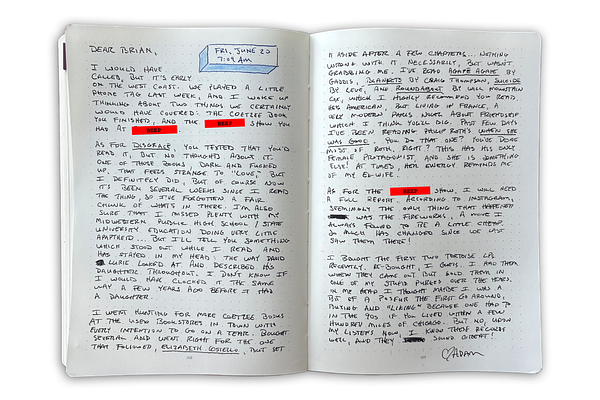 DEAR BRIAN,
FRI, JUNE 20
7:09 AM
I WOULD HAVE
CALLED, BUT IT'S EARLY
ON THE WEST COAST. WE PLAYED A LITTLE
PHONE TAG LAST WEEK, AND I WOKE UP
THINKING ABOUT TWO THINGS WE CERTAINLY
WOULD HAVE COVERED: THE COETZEE BOOK
YOU FINISHED, AND THE BEEP SHOW YOU
HAD AT BEEP
AS FOR DISGRACE, YOU TEXTED THAT YOU'D
READ IT, BUT NO THOUGHTS ABOUT IT.
ONE OF THOSE BOOKS, DARK AND FUCKED
UP, THAT FEELS STRANGE TO "LOVE," BUT
I DEFINITELY DID, BUT OF COURSE NOW
IT'S BEEN SEVERAL WEEKS SINCE I READ
THE THING SO I'VE FORGOTTEN A FAIR
CHUNK OF WHAT'S IN THERE. I'M ALSO
SURE THAT I MISSED PLENTY WITH MY
MIDWESTERN PUBLIC HIGH SCHOOL / STATE
UNIVERSITY EDUCATION DOING VERY LITTLE
APARTHEID... BUT I'LL TELL YOU SOMETHING
WHICH STOOD OUT WHILE I READ AND
HAS STAYED IN MY HEAD: THE WAY DAVID
LURIE LOOKED AT AND DESCRIBED HIS
DAUGHTER THROUGHOUT. I DON'T KNOW IF
I WOULD HAVE CLOCKED IT THE SAME
WAY A FEW YEARS AGO BEFORE I HAD
A DAUGHTER.
I WENT HUNTING FOR MORE COETZEE BOOKS
AT THE USED BOOKSTORES IN TOWN WITH
EVERY INTENTION TO GO ON A TEAR. BOUGHT
SEVERAL AND WENT RIGHT FOR THE ONE
THAT FOLLOWED, ELIZABETH COSTELLO, BUT SET
IT ASIDE AFTER A FEW CHAPTERS... NOTHING
WRONG WITH IT, NECESSARILY, BUT WASN'T
GRABBING ME. I'VE READ AGAPĒ AGAPE BY
GADDIS, BLANKETS BY CRAIG THOMPSON, SUICIDE
BY LEVÉ, AND ROUNDABOUT BY WILL MOUNTAIN
COX, WHICH I HIGHLY RECOMMEND YOU READ.
HE'S AMERICAN, BUT LIVING IN FRANCE, A
VERY MODERN PARIS NOVEL ABOUT FRIENDSHIP
WHICH I THINK YOU'LL DIG. PAST FEW DAYS
I'VE BEEN READING PHILIP ROTH'S WHEN SHE
WAS GOOD. YOU DO THAT ONE? YOU'VE DONE
MOST OF ROTH, RIGHT? THIS HAS HIS ONLY
FEMALE PROTAGONIST AND SHE IS SOMETHING
ELSE! AT TIMES HER ENERGY REMINDS ME
OF MY EX-WIFE.
AS FOR THE BEEP SHOW, I WILL NEED
A FULL REPORT. ACCORDING TO INSTAGRAM,
SEEMINGLY THE ONLY THING THAT HAPPENED
WAS THE FIREWORKS. A MOVE I
ALWAYS FOUND TO BE A LITTLE CHEAP.
SO MUCH HAS CHANGED SINCE WE LAST
SAW THEM THERE!
I BOUGHT THE FIRST TWO TORTOISE LPS
RECENTLY. RE-BOUGHT, I GUESS. I HAD THEM
WHEN THEY CAME OUT BUT SOLD THEM IN
ONE OF MY STUPID PURGES OVER THE YEARS.
IN MY HEAD I THOUGHT MAYBE I WAS A
BIT OF A POSEUR THE FIRST GO AROUND,
BUYING AND "LIKING" BECAUSE ONE HAD TO
IN THE 90S IF YOU LIVED WITHIN A FEW
HUNDRED MILES OF CHICAGO. BUT NO, UPON
MY LISTENS NOW, I KNOW THESE RECORDS
WELL, AND THEY SOUND GREAT!
ADAM